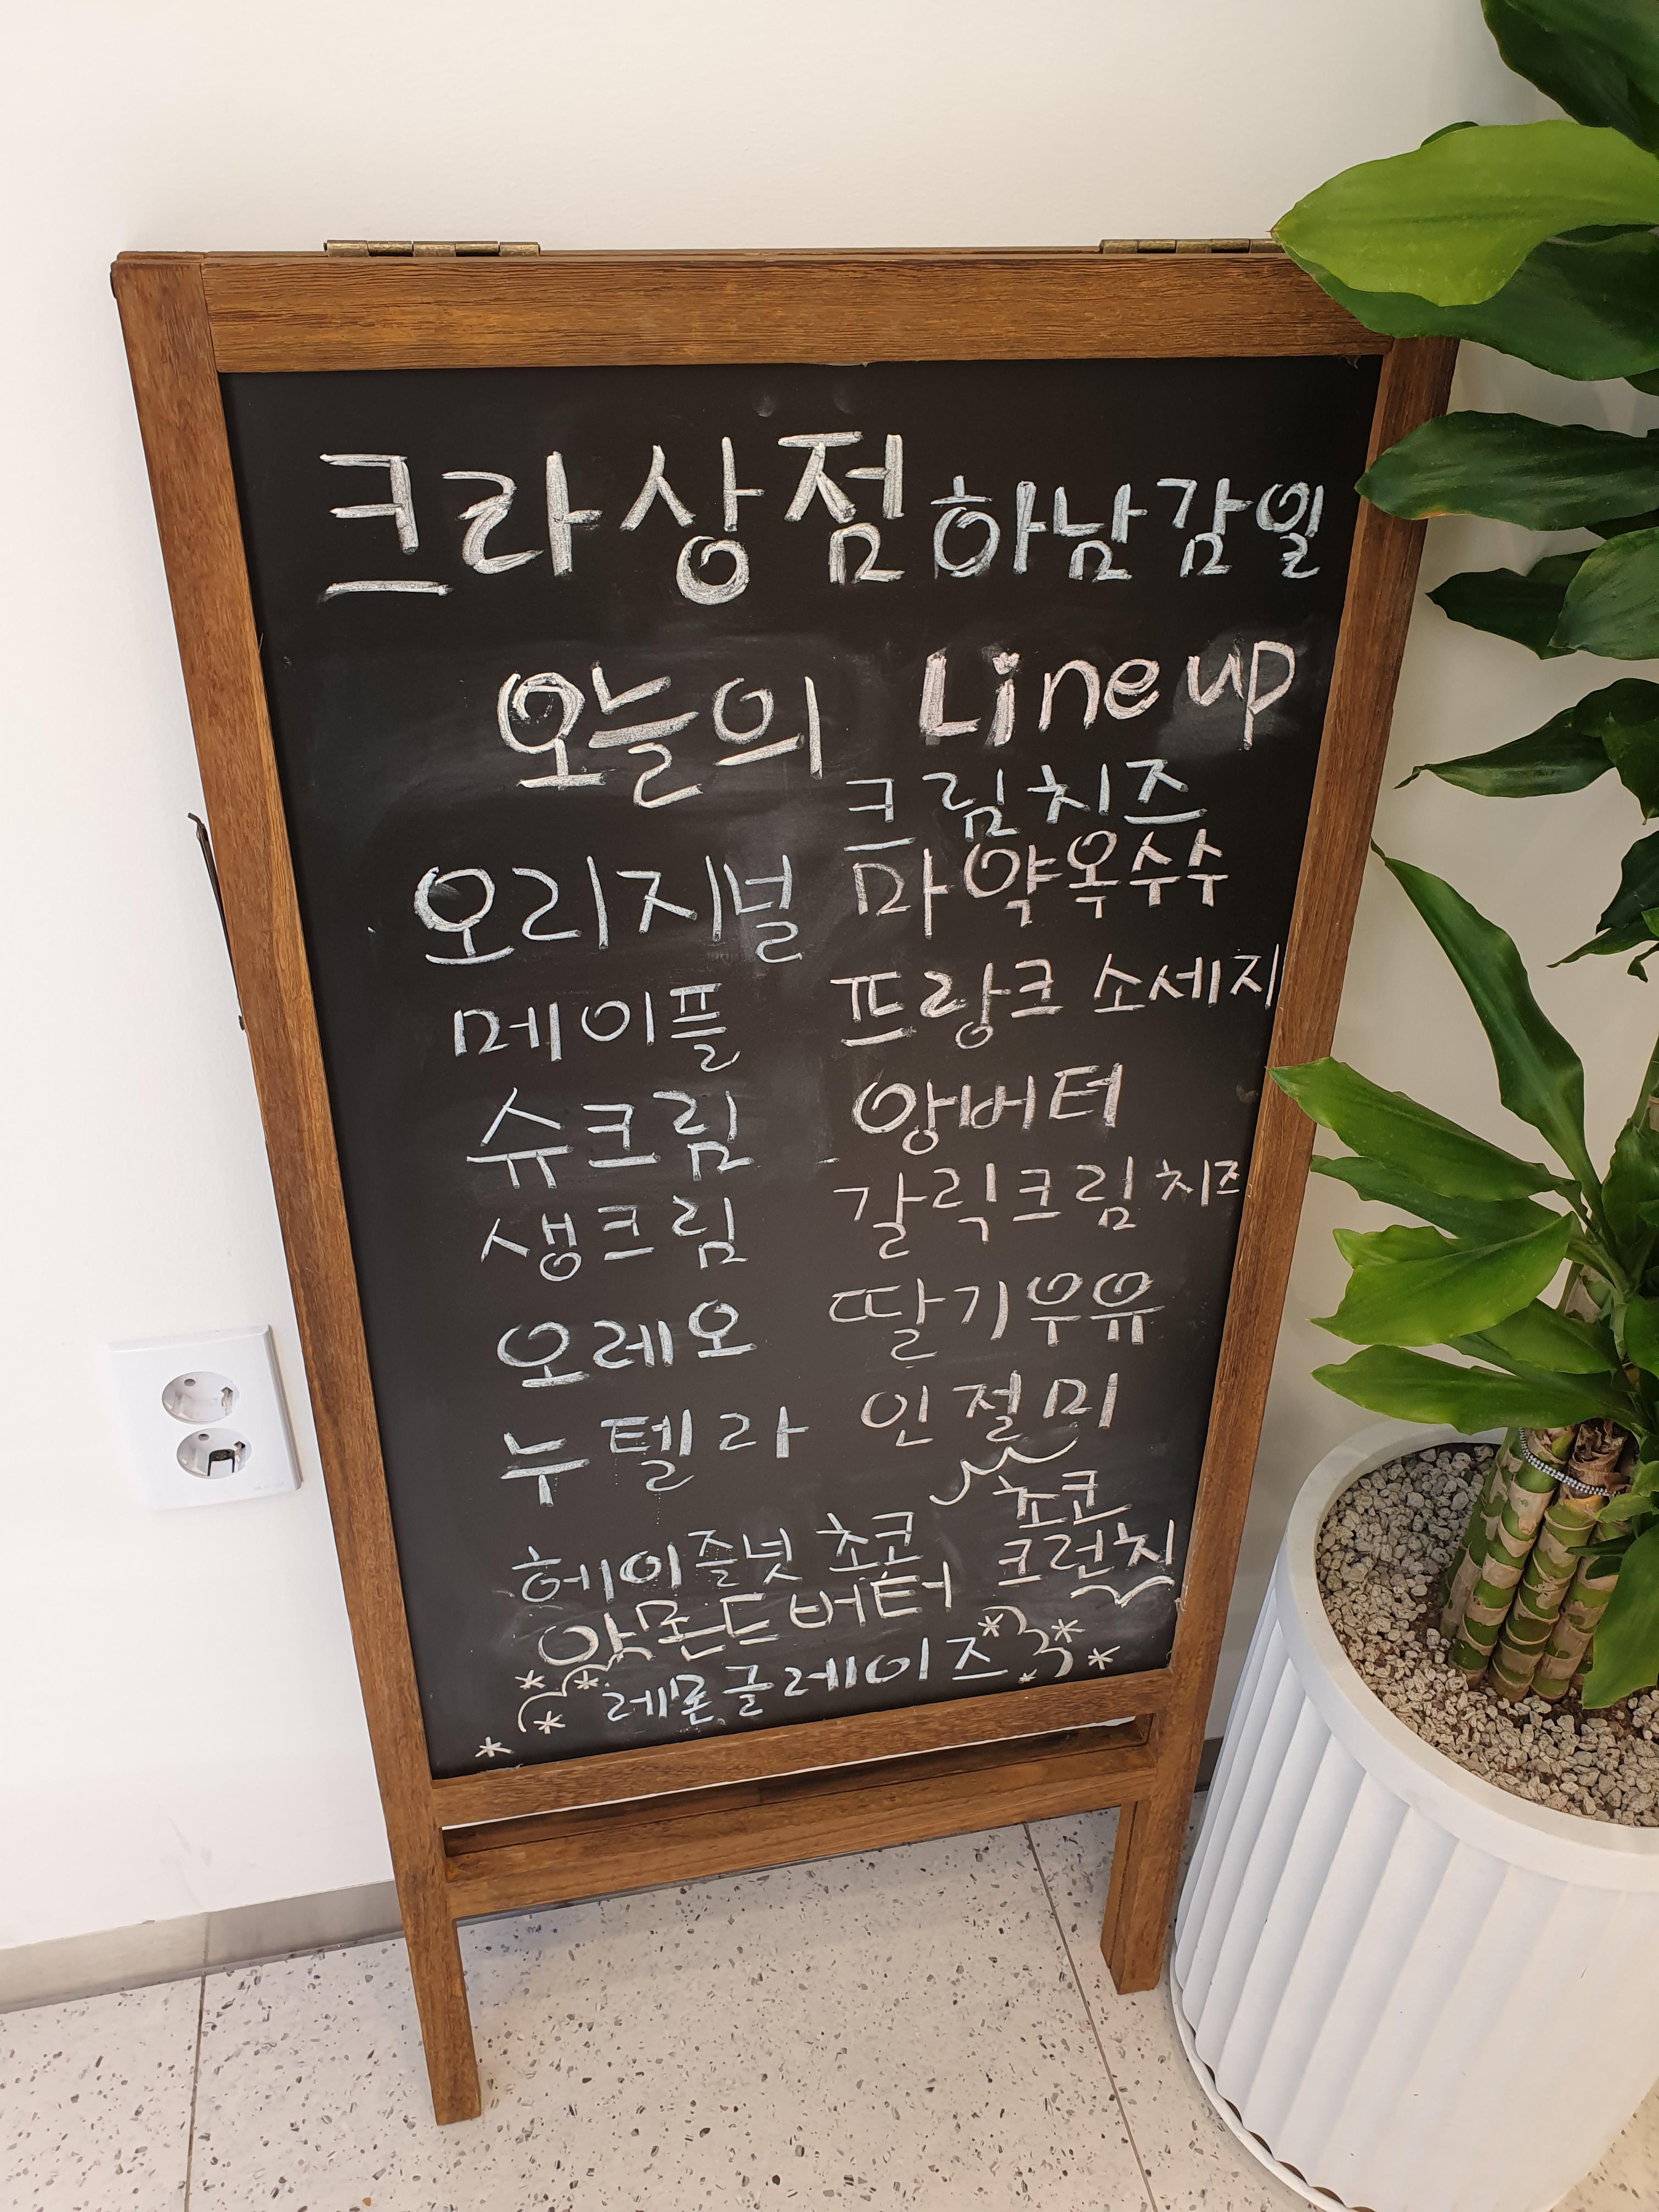 크라상점 하남감일
오늘의 Line up
오리지널
메이플
슈크림
생크림
오레오
누텔라
헤이즐넛 초코
아몬드버터
레몬글레이즈
크림치즈
마약옥수수
프랑크 소세지
앙버터
갈릭크림치즈
딸기우유
인절미
초코
크런치